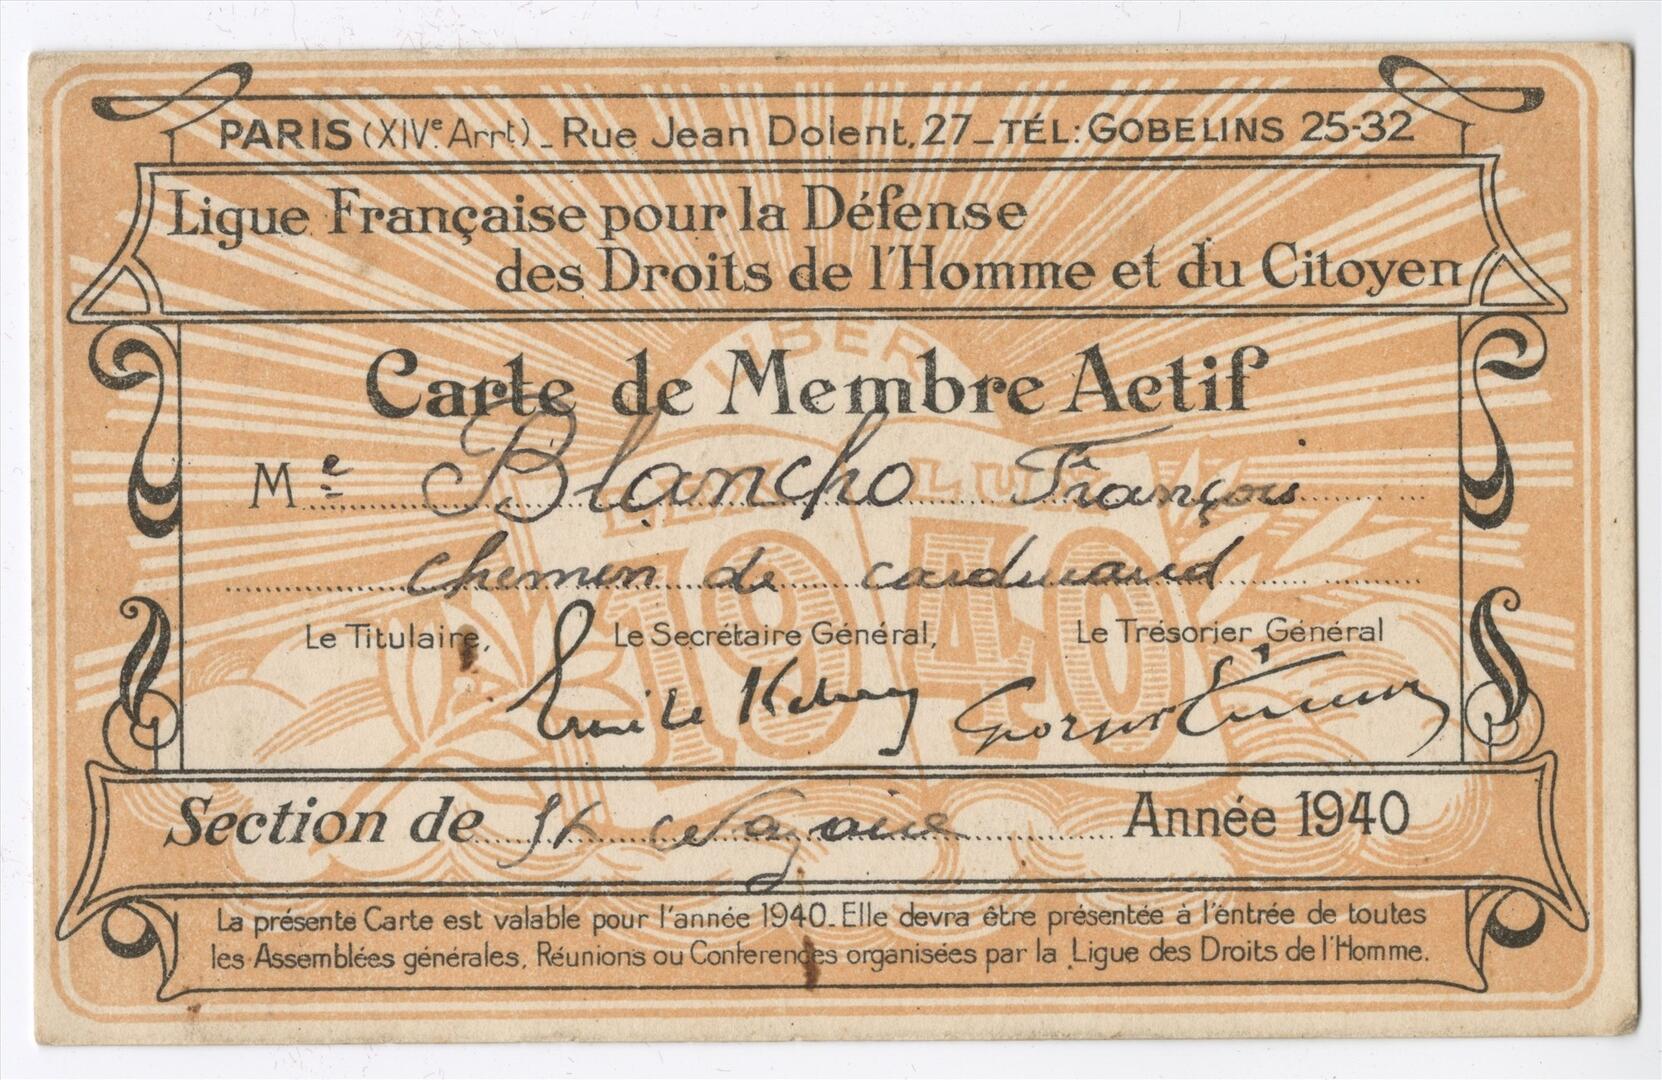 PARIS (XIVe Arrt) _ Rue Jean Dolent, 27 _ TÉL: GOBELINS 25-32
Ligue Française pour la Défense
des Droits de l'Homme et du Citoyen
Carte de Membre Actif
Me Blancho François
chemin de
Le Titulaire, Le Secrétaire Général, Le Trésorier Général
Emile Kahn
Section de St Nazaire Année 1940
La présente Carte est valable pour l'année 1940_ Elle devra être présentée à l'entrée de toutes
les Assemblées générales, Réunions ou Conferences organisées par la Ligue des Droits de l'Homme.